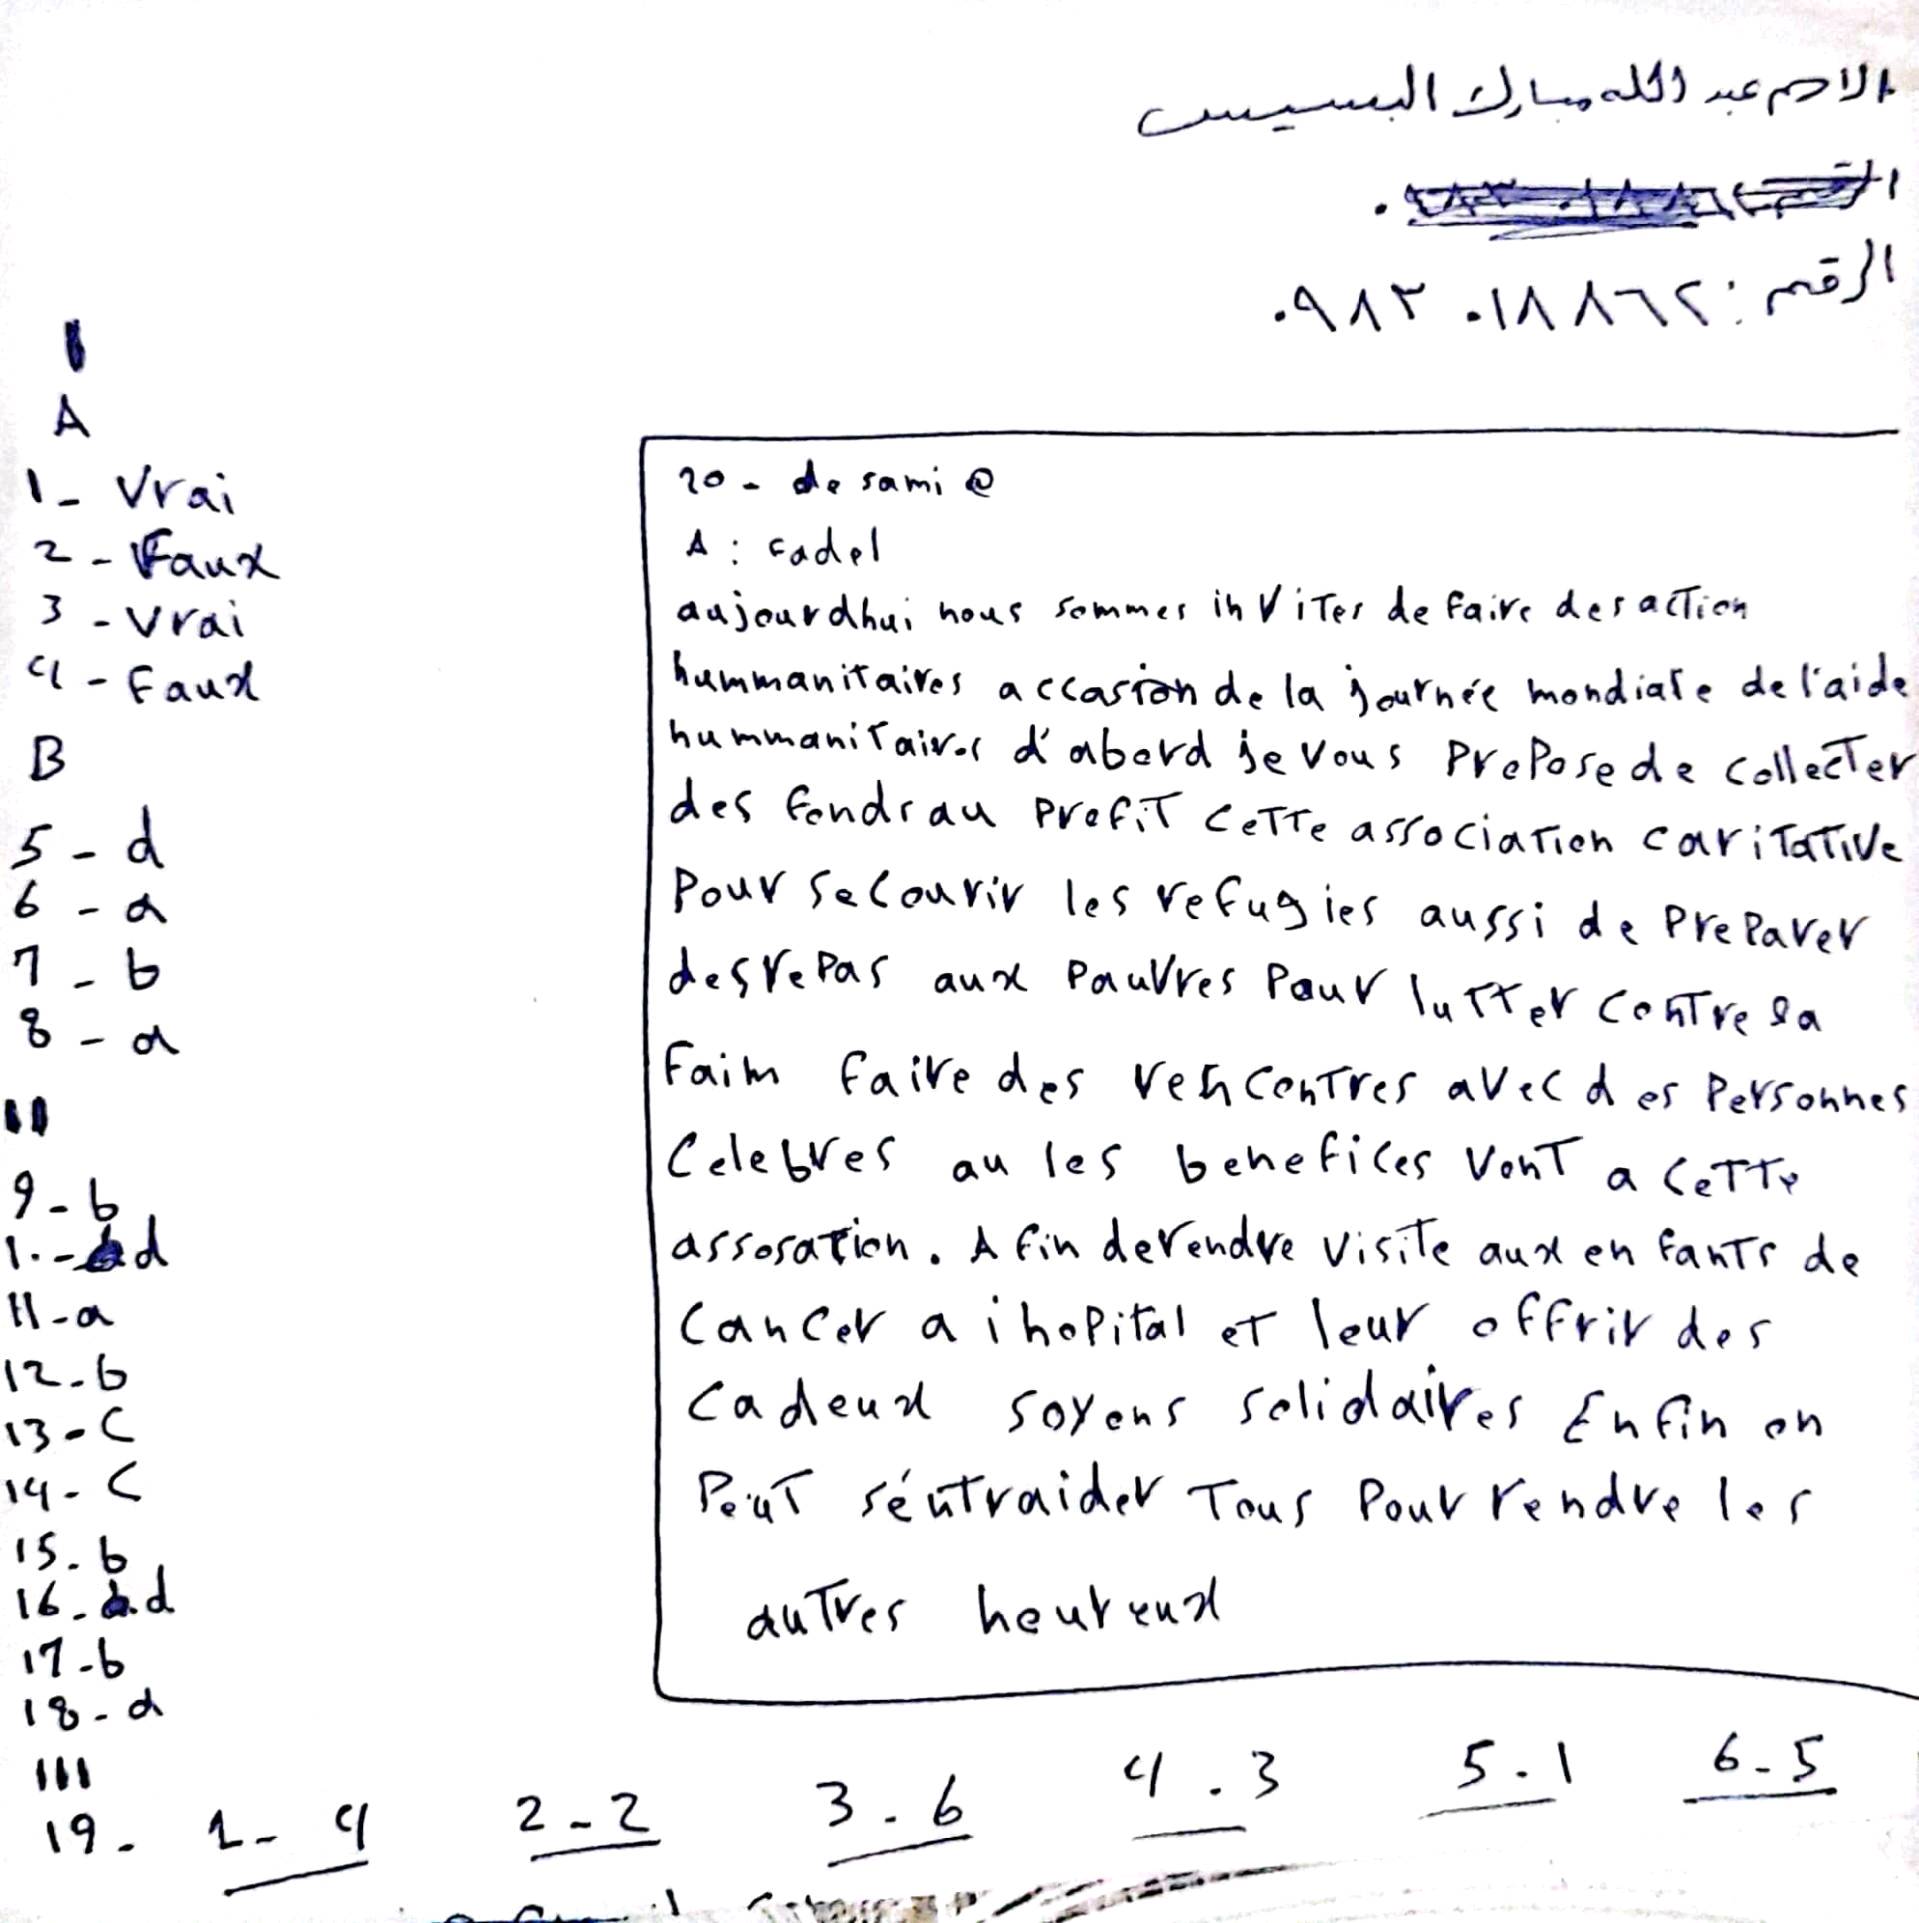 الاسم عبد الله مبارك البسيس
الرقم : ٢٨٦٢ ٠٩٨٣٠١٨
I
A
1- Vrai
2 - Faux
3 - Vrai
4 - Faux
B
5 - d
6 - a
7 - b
8 - a
II
9 - b
10 - d
11 - a
12 - b
13 - c
14 - c
15 - b
16 - d
17 - b
18 - a
20 - de sami @
A : Fadel
aujourdhui nous sommes invites de faire des action
hummanitaires accasion de la journée mondiale de l'aide
hummanitaires d'abord je vous propose de collecter
des fonds au profit cette association caritative
pour secourir les refugies aussi de preparer
des repas aux pauvres pour lutter contre la
faim faire des rencontres avec des personnes
celebres au les benefices vont a cette
assosation. Afin de rendre visite aux enfants de
cancer a ihopital et leur offrir des
cadeux soyons solidaires Enfin on
peut séntraider tous pour rendre les
autres heureux
III
19 - 1-4 2-2 3-6 4-3 5-1 6-5